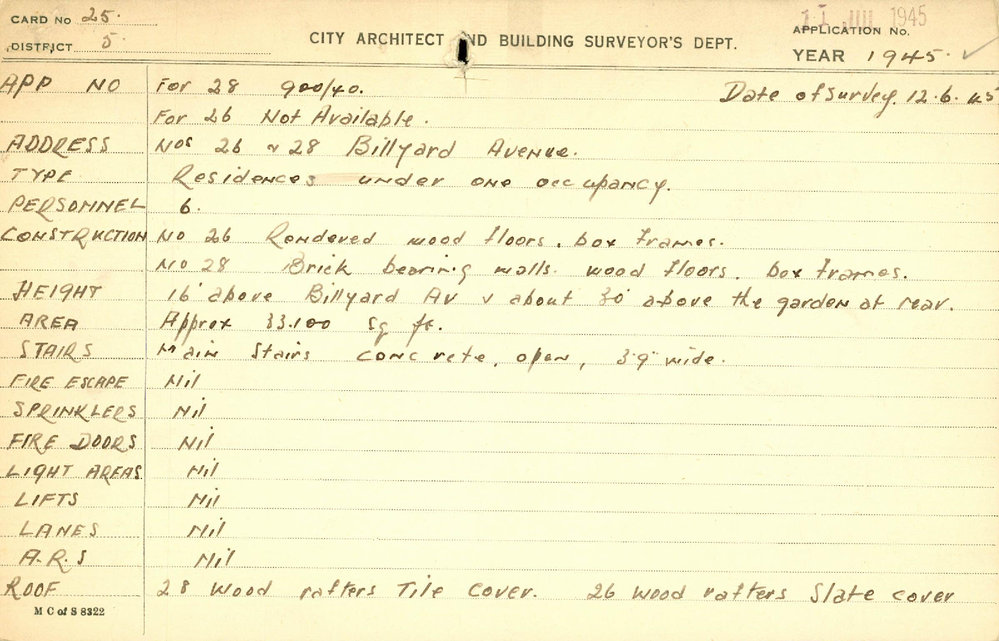 CARD No 25.
DISTRICT 5.
CITY ARCHITECT AND BUILDING SURVEYOR'S DEPT.
11 JUL 1945
APPLICATION No.
YEAR 1945.
APP NO For 28 900/40. Date of survey. 12.6.45
For 26 Not Available.
ADDRESS Nos 26 & 28 Billyard Avenue.
TYPE Residences under one occupancy.
PERSONNEL 6.
CONSTRUCTION No 26 Rendered wood floors. box frames.
No 28 Brick bearing walls. wood floors. box frames.
HEIGHT 16' above Billyard Av & about 30' above the garden at rear.
AREA Approx 33.100 sq ft.
STAIRS Main Stairs concrete, open, 3'9" wide.
FIRE ESCAPE Nil
SPRINKLERS Nil
FIRE DOORS Nil
LIGHT AREAS Nil
LIFTS Nil
LANES Nil
A.R.S Nil
ROOF 28 Wood rafters Tile cover. 26 wood rafters Slate cover
M C of S 8322